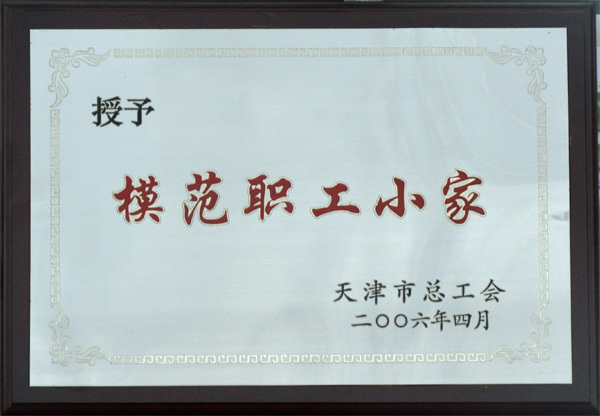 授予
模范职工小家
天津市总工会
二〇〇六年四月